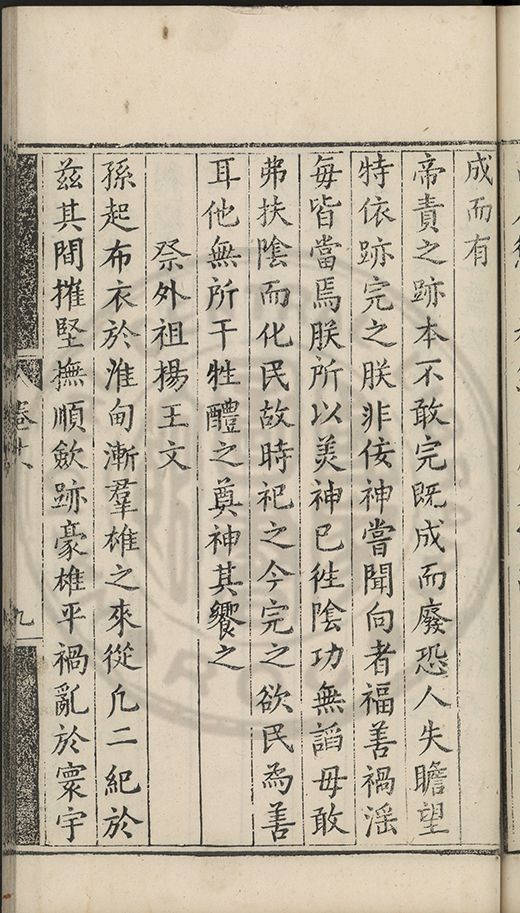 成而有
帝責之跡本不敢完既成而廢恐人失瞻望
特依跡完之朕非佞神嘗聞向者福善禍淫
每皆當焉朕所以美神已徃陰功無謟毋敢
弗扶陰而化民故時祀之今完之欲民為善
耳他無所干牲醴之奠神其饗之
祭外祖楊王文
孫起布衣於淮甸漸羣雄之來從凢二紀於
兹其間摧堅撫順歛跡豪雄平禍亂於寰宇
卷十八
九